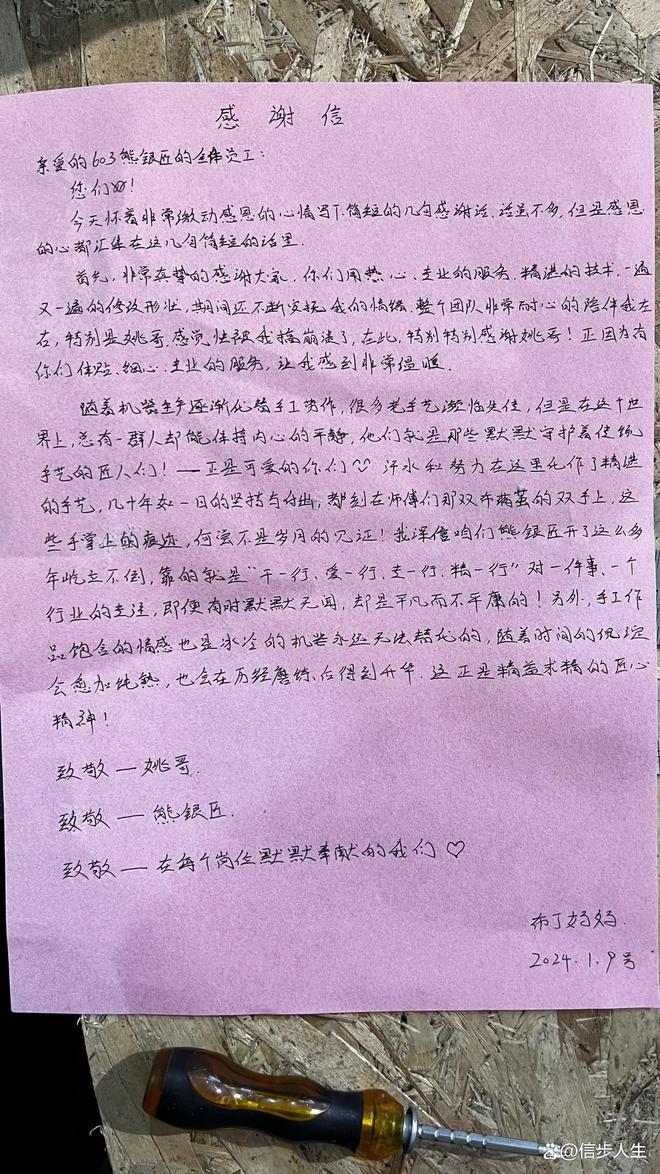 感谢信
亲爱的603熊银匠的全体员工:
您们好!
今天怀着非常激动感恩的心情写下简短的几句感谢话,话虽不多,但是感恩
的心都汇集在这几句简短的话里.
首先,非常真挚的感谢大家,你们用热心、专业的服务、精湛的技术,一遍
又一遍的修改形状,期间还不断安抚我的情绪,整个团队非常耐心的陪伴我左
右,特别是姚哥,感觉快被我搞崩溃了,在此,特别特别感谢姚哥!正因为有
你们体贴、细心、专业的服务,让我感到非常温暖.
随着机器生产逐渐代替手工劳作,很多老手艺濒临失传,但是在这个世
界上,总有一群人却能保持内心的平静,他们就是那些默默守护着传统
手艺的匠人们!一正是可爱的你们♡ 汗水和努力在这里化作了精湛
的手艺,几十年如一日的坚持与付出,都刻在师傅们那双布满茧的双手上,这
些手掌上的痕迹,何尝不是岁月的见证!我深信咱们熊银匠开了这么多
年屹立不倒,靠的就是“干一行、爱一行、专一行、精一行”对一件事、一个
行业的专注,即使有时默默无闻,却是平凡而不平庸的!另外,手工作
品饱含的情感也是冰冷的机器永远无法替代的,随着时间的沉淀
会愈加纯熟,也会在历经磨练后得到升华.这正是精益求精的匠心
精神!
致敬一姚哥.
致敬一熊银匠.
致敬一在每个岗位默默奉献的我们♡
布丁妈妈.
2024.1.9号
@信步人生